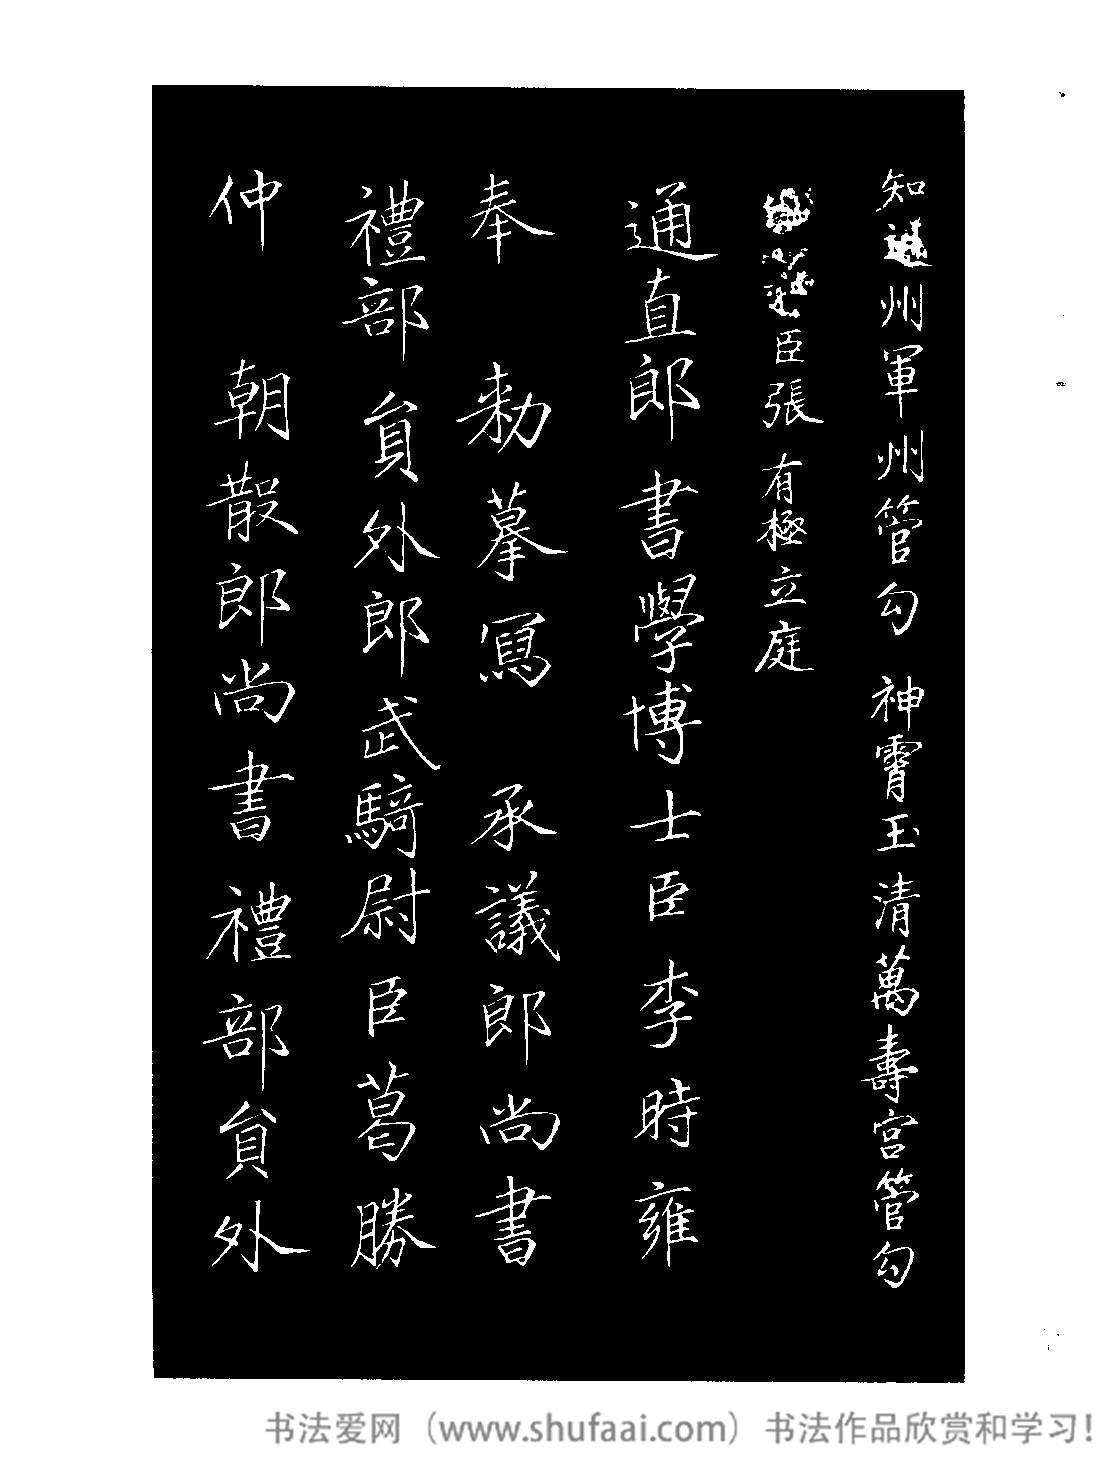 知遂州軍州管勾神霄玉清萬壽宮管勾
臣張有極立庭
通直郎書學博士臣李時雍
奉 勅摹寫 承議郎尚書
禮部貟外郎武騎尉臣葛勝
仲 朝散郎尚書禮部貟外
书法爱网（www.shufaai.com）书法作品欣赏和学习！